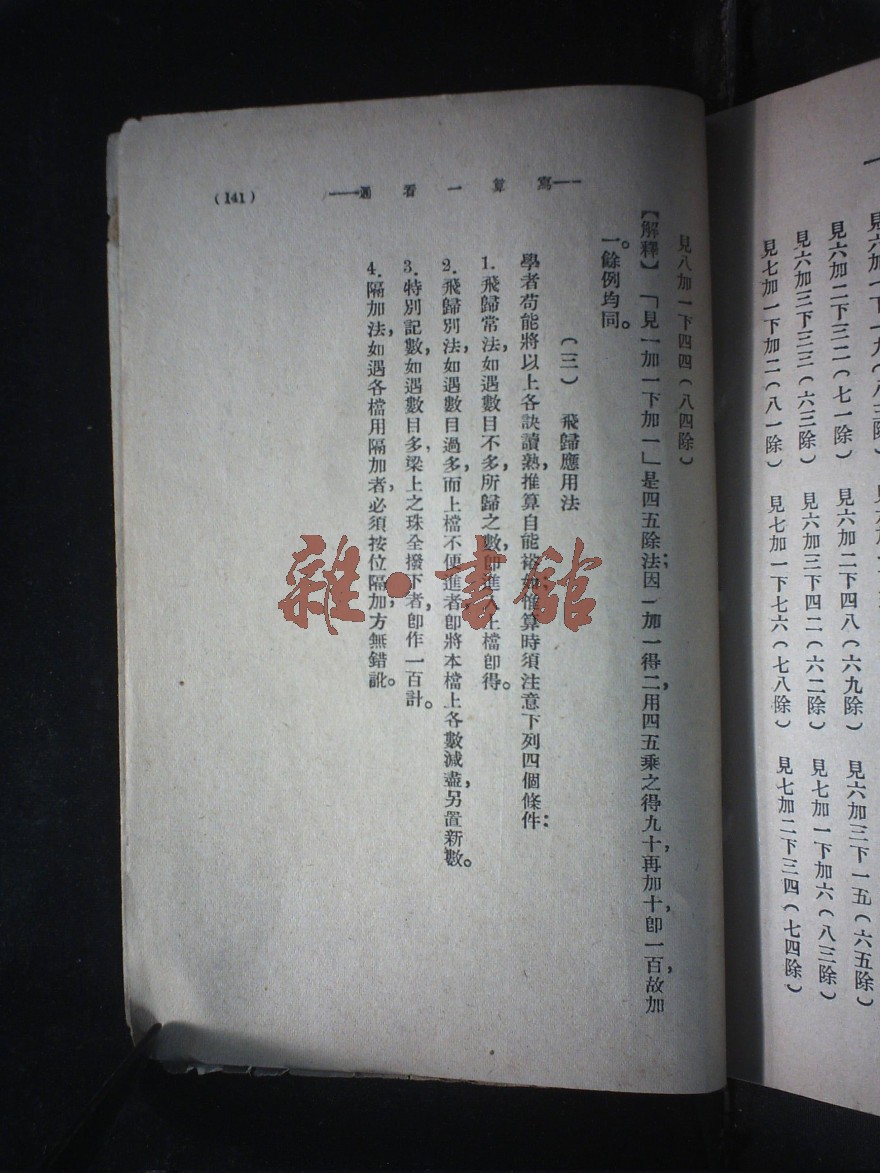 見六加一下一九(八三除)
見六加二下三二(七一除) 見六加二下四八(六九除) 見六加三下一五(六五除)
見六加三下三三(六三除) 見六加三下四二(六二除) 見七加一下加六(八三除)
見七加一下加二(八一除) 見七加一下七六(七八除) 見七加二下三四(七四除)
寫算一看通
(141)
見八加一下四四(八四除)
【解釋】「見一加一下加一」是四五除法;因一加一得二,用四五乘之得九十,再加十卽一百,故加
一。餘例均同。
(三) 飛歸應用法
學者苟能將以上各訣讀熟,推算自能裕如,惟算時須注意下列四個條件:
1. 飛歸常法,如遇數目不多,所歸之數,卽進入上檔卽得。
2. 飛歸別法,如遇數目過多,而上檔不便進者,卽將本檔上各數減盡,另置新數。
3. 特別記數,如遇數目多,梁上之珠全撥下者,卽作一百計。
4. 隔加法,如遇各檔用隔加者,必須按位隔加,方無錯訛。
雜·書館